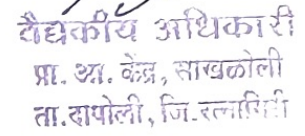 वैद्यकीय अधिकारी
प्रा. आ. केंद्र, साखळोली
ता. दापोली, जि. रत्नागिरी